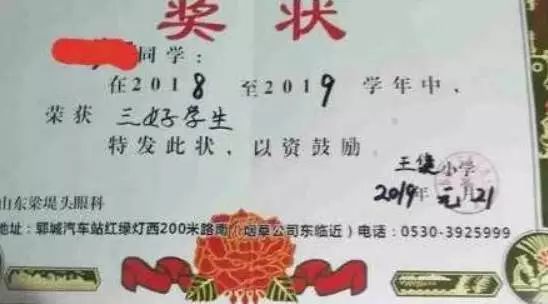 奖状
同学:
在2018至2019学年中,
荣获 三好学生
特发此状,以资鼓励
王堤小学
2019年元月21
山东梁堤头眼科
地址:郓城汽车站红绿灯西200米路南(烟草公司东临近)电话:0530-3925999